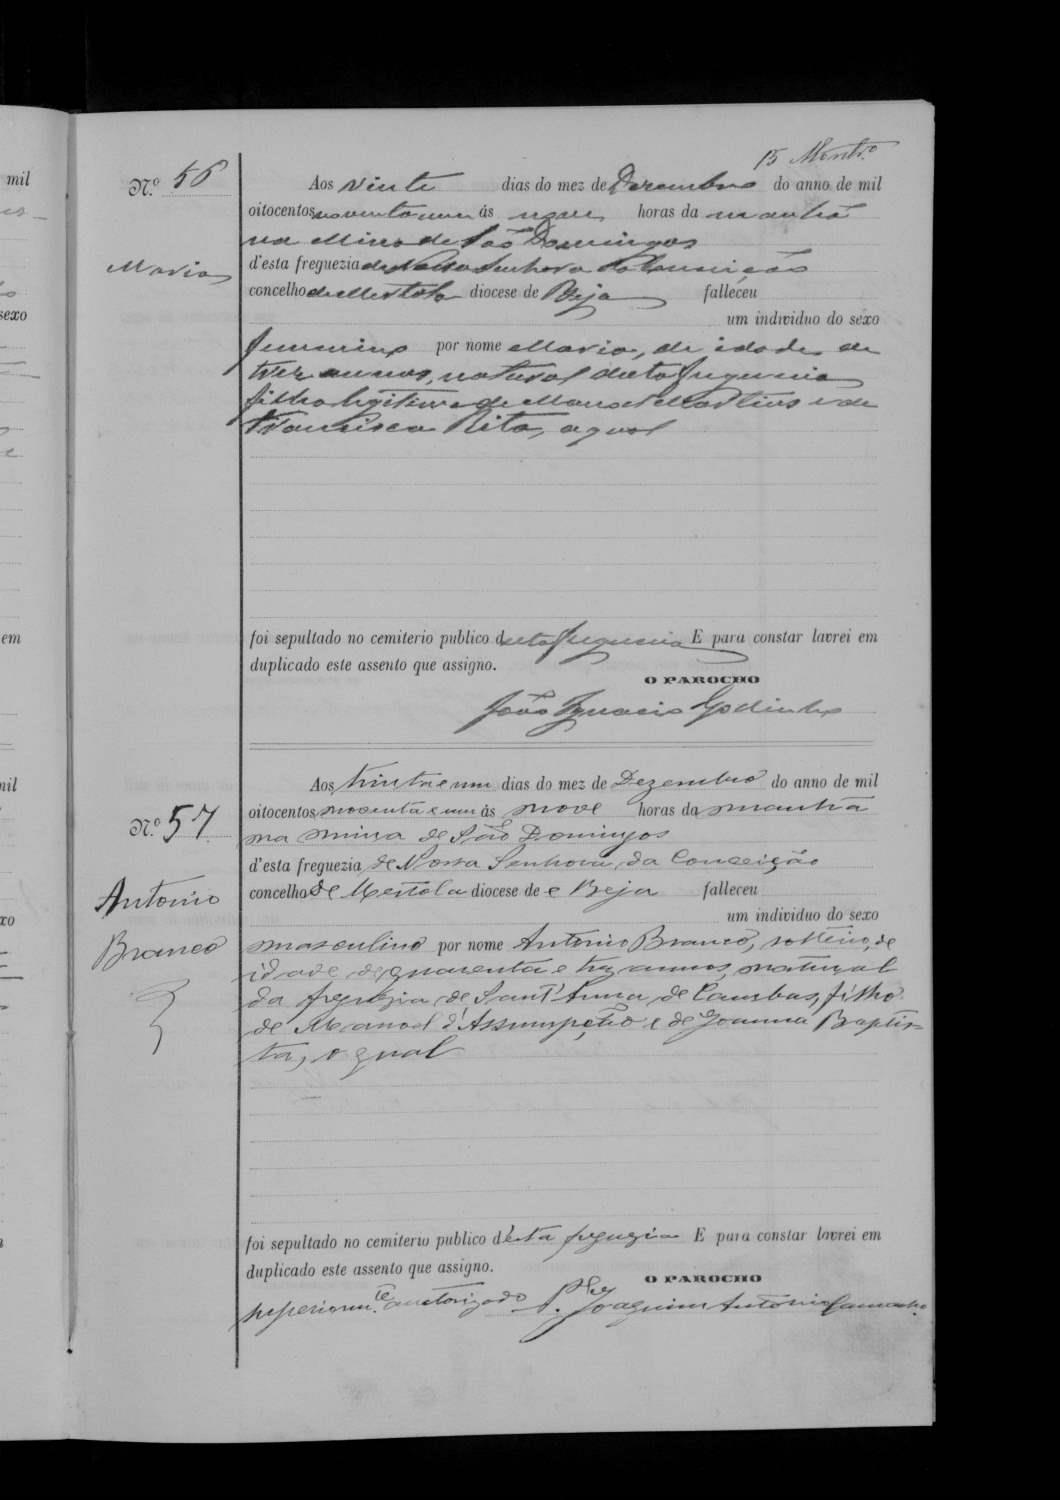 15
N.º 56
Aos vinte dias do mez de Dezembro do anno de mil
oitocentos noventa e um ás nove horas da manhã
na Mina de São Domingos
Maria
d'esta freguezia de Nossa Senhora da Conceição
concelho de Mertola diocese de Beja falleceu
um individuo do sexo
femenino por nome Maria, de idade de
trez annos, natural desta freguezia
filha legitima de Manoel Martins e de
Francisca Rita, a qual
foi sepultado no cemiterio publico desta freguezia E para constar lavrei em
duplicado este assento que assigno.
O PAROCHO
João Ignacio Godinho
Aos trinta e um dias do mez de Dezembro do anno de mil
oitocentos noventa e um ás nove horas da manhã
N.º 57
na mina de São Domingos
d'esta freguezia de Nossa Senhora da Conceição
concelho de Mertola diocese de e Beja falleceu
Antonio
um individuo do sexo
Branco
masculino por nome Antonio Branco, solteiro, de
idade de quarenta e trez annos, natural
da freguezia de Sant'Anna de Cambas, filho
de Manoel d'Assumpção e de Joanna Baptis-
ta, o qual
foi sepultado no cemiterio publico d'esta freguezia E para constar lavrei em
duplicado este assento que assigno.
O PAROCHO
superiorm.te auctorizado P.e Joaquim Antonio
mil
sexo
em
mil